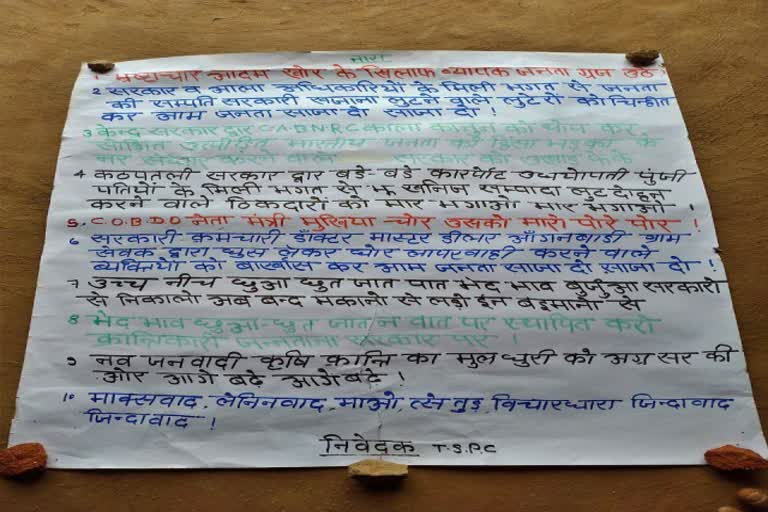 नारा
1 भ्रष्टाचार आदम खोर के खिलाफ व्यापक जनता ग्रज उठे
2 सरकार व आला अधिकारियों के मिली भगत से जनता
की सम्पति सरकारी खजाना लुटने वाले लुटेरों को चिन्हीत
कर आम जनता साजा दो साजा दो !
3 केन्द्र सरकार द्वार C.A.B N.R.C काला कानुन को थोप कर
भारतीय जनता को हिंसा भड़का के
करने वाले सरकार को उखाड़ फेंके
4 कठपुतली सरकार द्वार बड़े-बड़े कारपोट उधयोपती पुंजी
पतियों के मिली भगत से खनिज सम्पादा लुट दोहन
करने वाले ठिकदारों को मार भगाओ मार भगाओ !
5. C.O.B.D.O नेता मंत्री मुखिया चोर उसको मारो पोरे पोर !
6 सरकारी क्रमचारी डॉक्टर मास्टर डीलर आँगनबाडी ग्राम
सेवक द्वारा घुस लेकर घोर लापरवाही करने वाले
व्यक्तियों को बार्खास कर आम जनता साजा दो साजा दो !
7 उच्च नीच छुआ छुत जात पात भेद भाव बुर्जुआ सरकारो
से निकालो अब बन्द मकानो से लड़ो इन बइमानो से
8 भेद भाव छुआ-छुत जात न वात पर स्थापित करो
क्रान्तिकारी जनताना सरकार पर !
9 नव जनवादी कृषि क्रान्ति का मुल धुरी को अग्र सर की
ओर आगे बढ़े आगे बढ़े !
10 माक्सवाद, लेनिनवाद, माओ, त्से तुड़ विचारधारा जिन्दावाद
जिन्दावाद !
निवेदक T.S.P.C